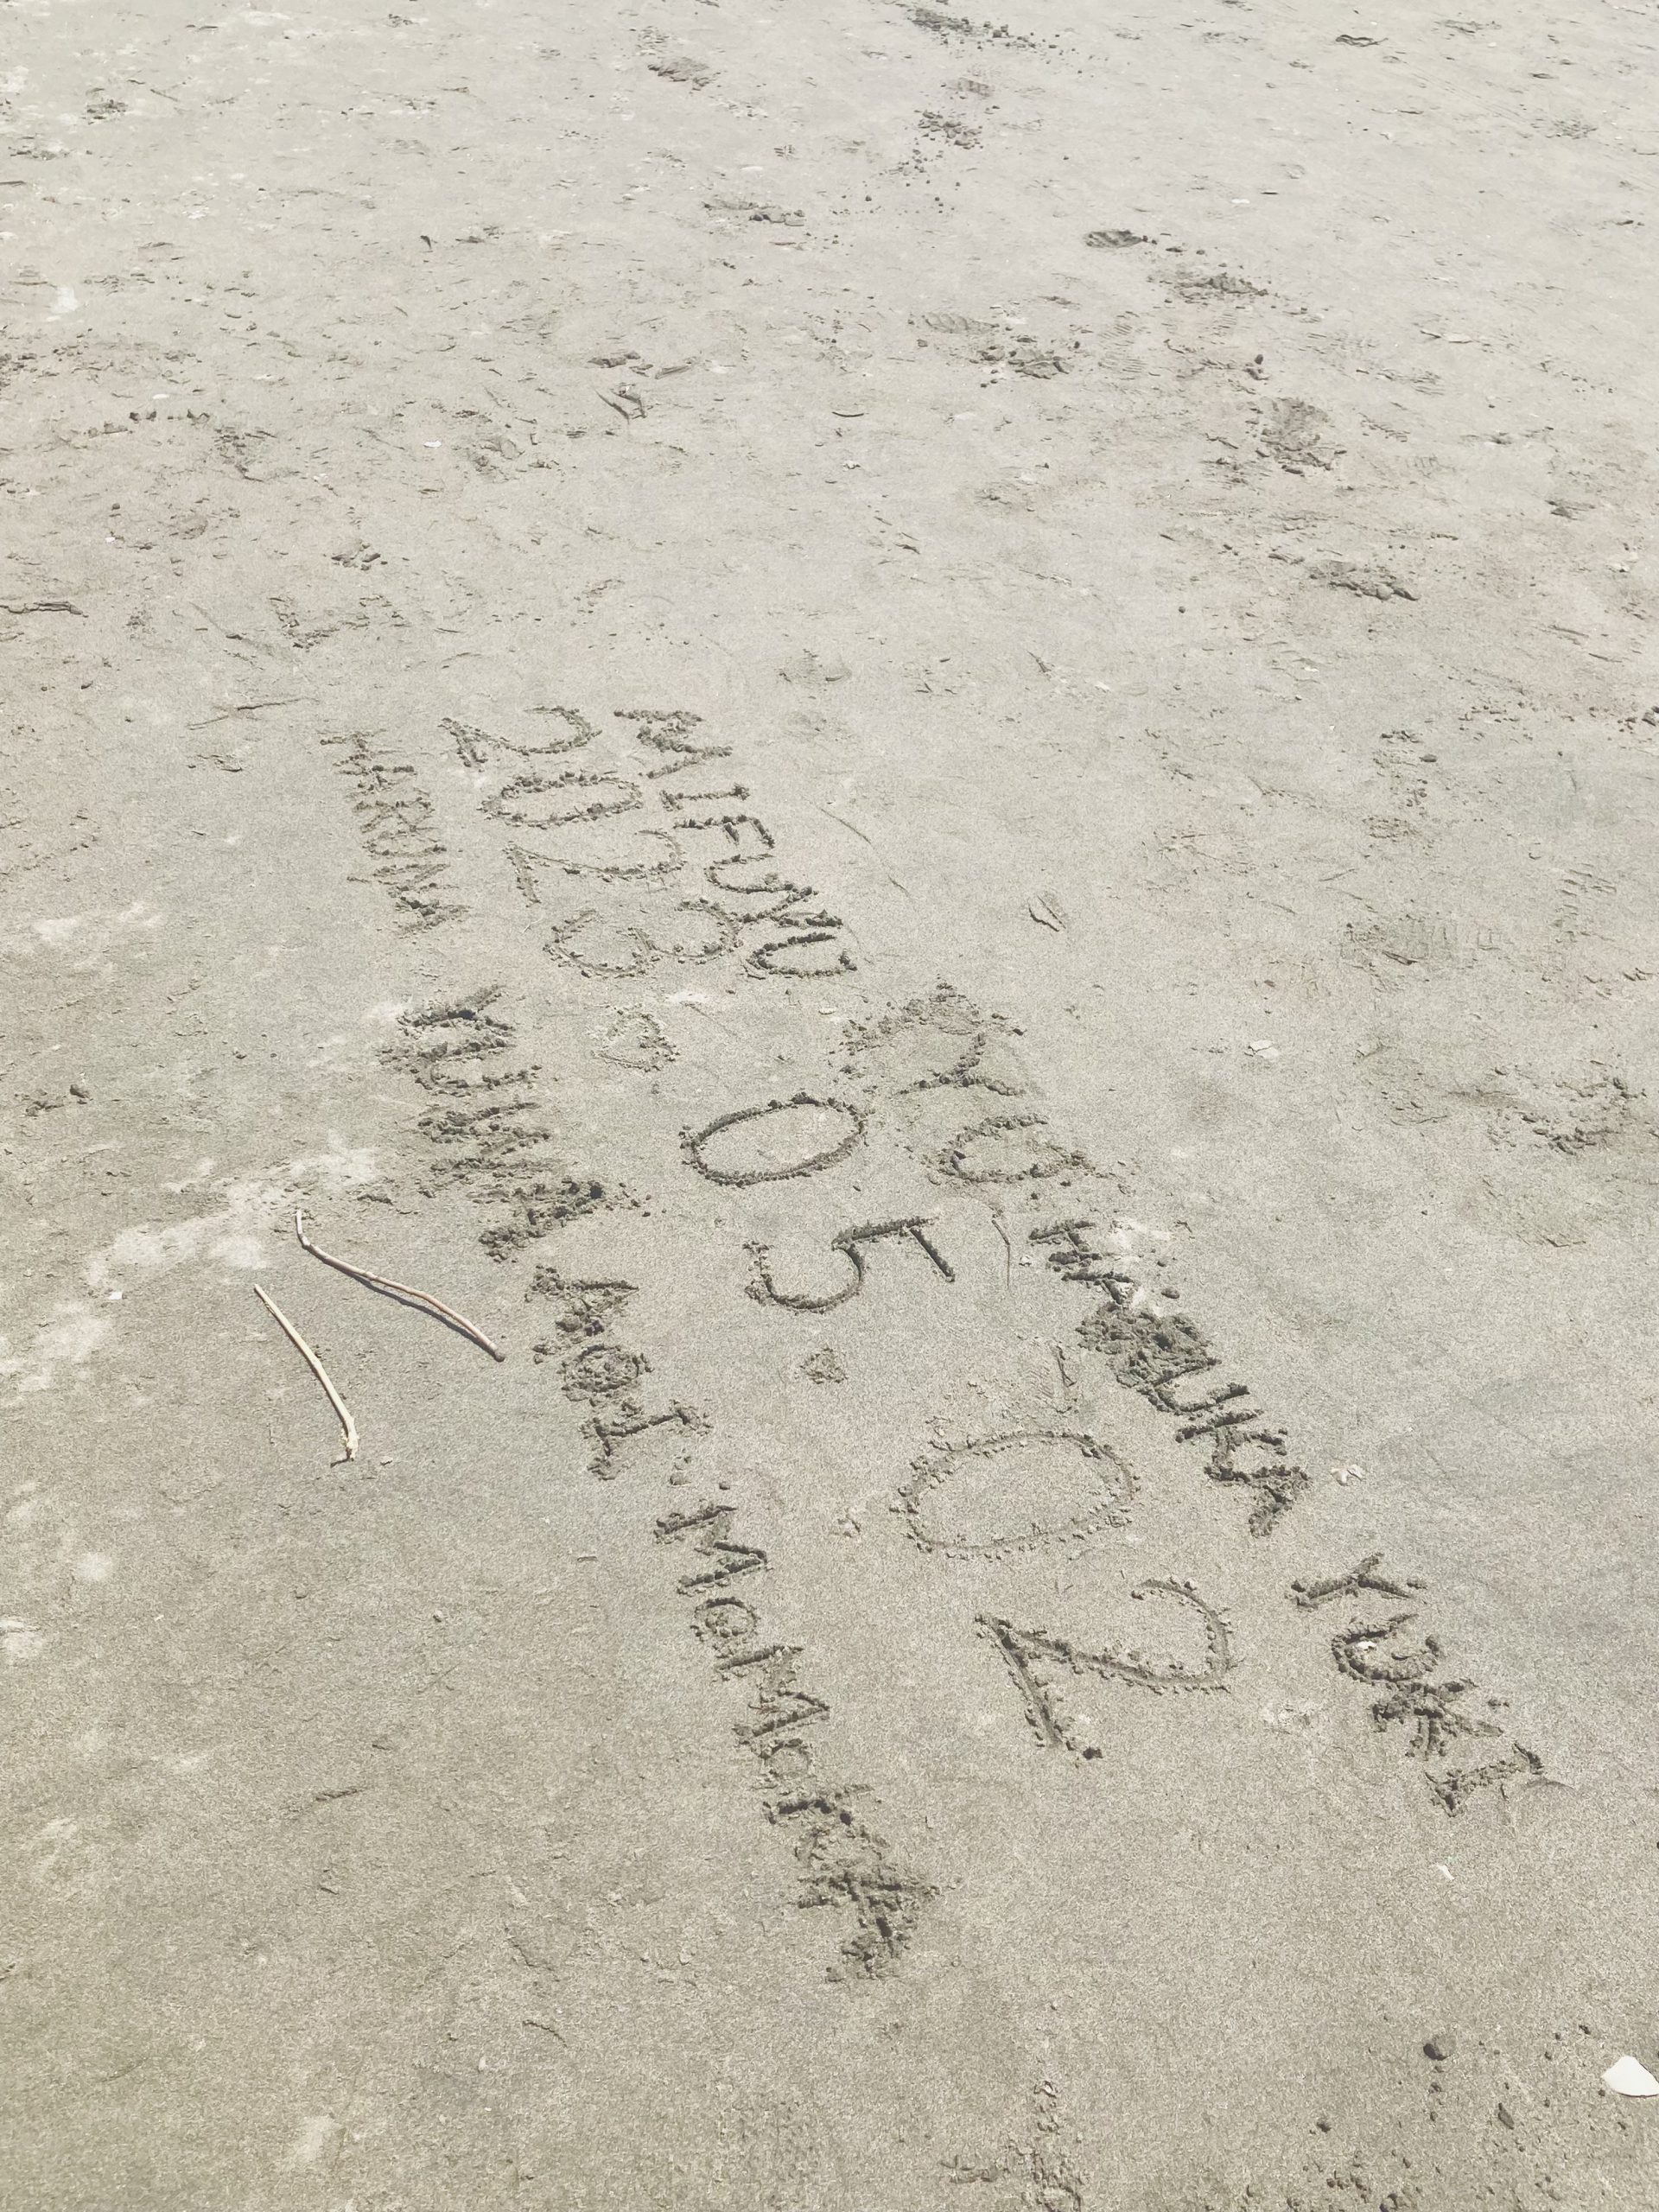 MIFUYU YU HARUKA YUKI
2023.05.02
HARUNA YUMA AOI MOMOKA